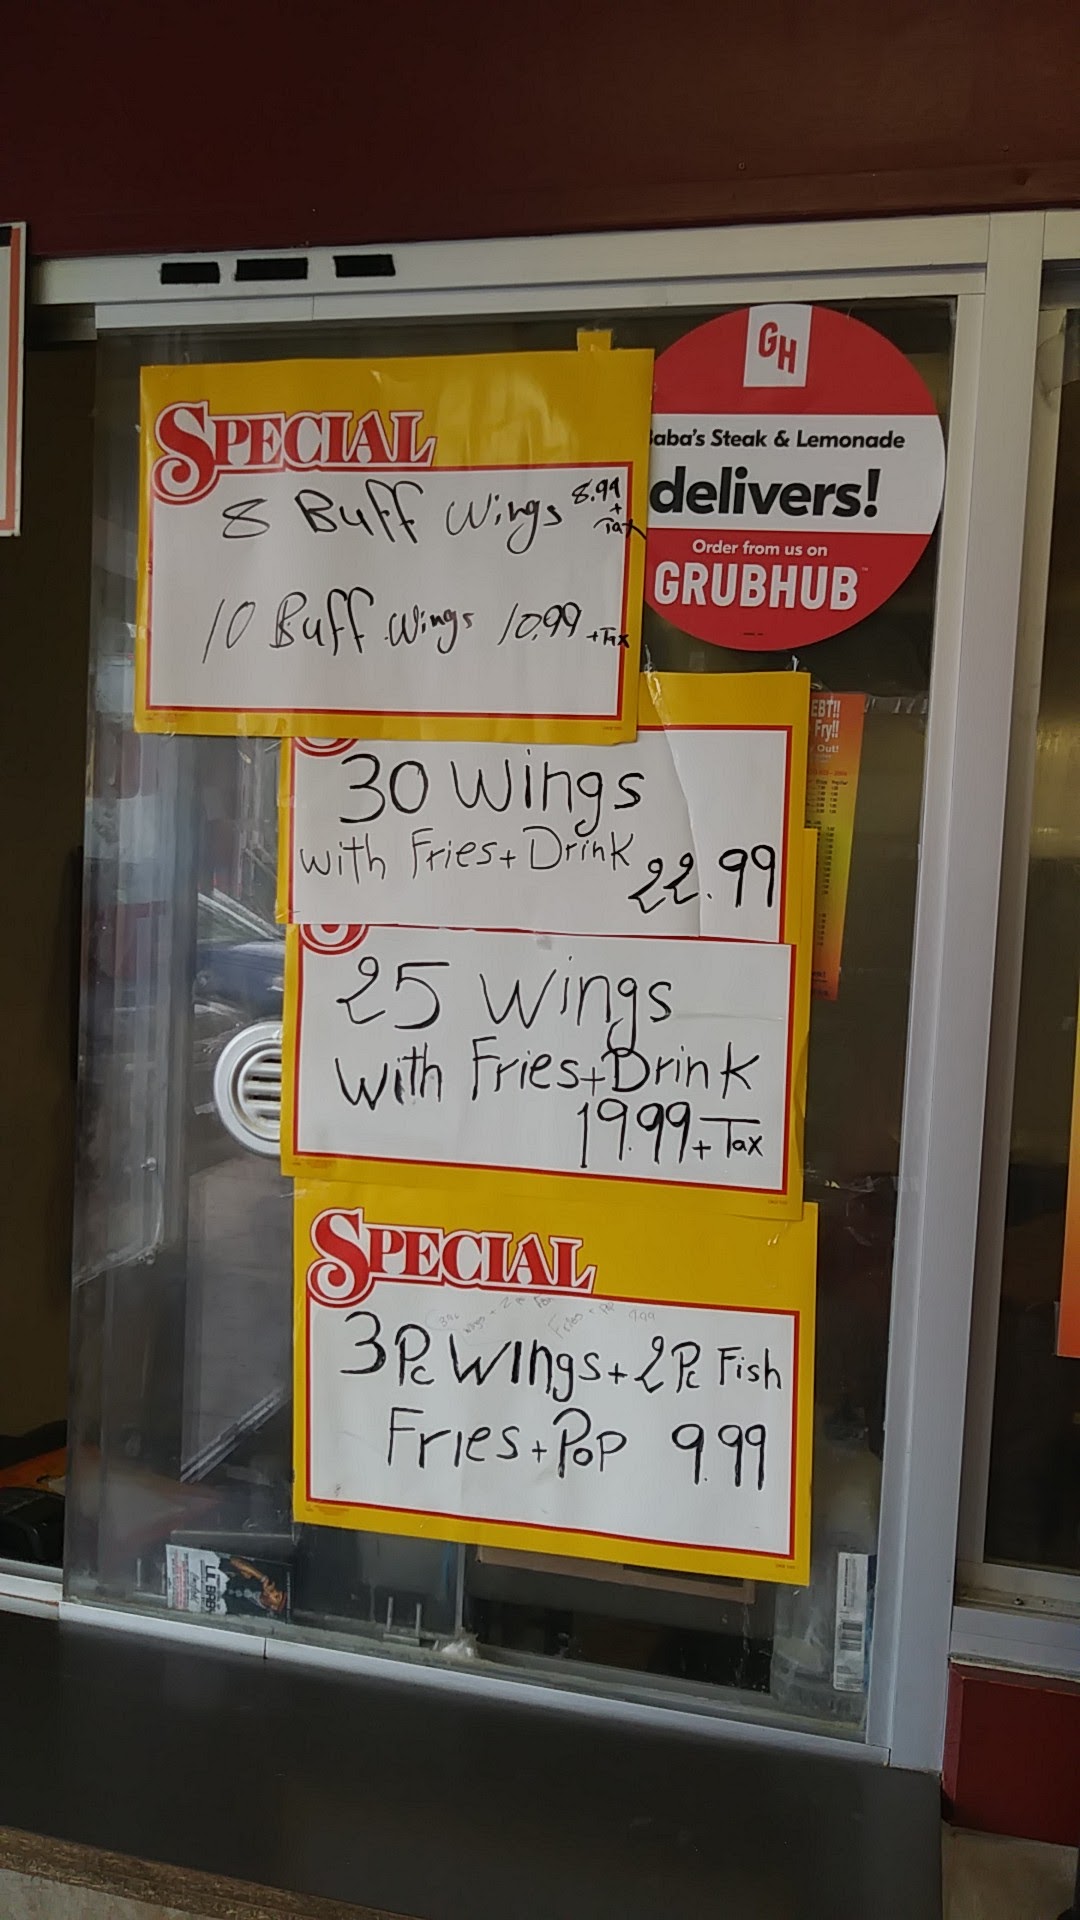 GH
aba's Steak & Lemonade
delivers!
Order from us on
GRUBHUB
SPECIAL
8 Buff Wings 8.99
+
Tax
10 Buff Wings 10.99 +Tax
30 Wings
with Fries + Drink
22.99
25 Wings
with Fries + Drink
19.99 + Tax
SPECIAL
3Pc Wings + 2Pc Fish
Fries + Pop 9.99
EBT!!
Fry!!
Out!
LIL BABY